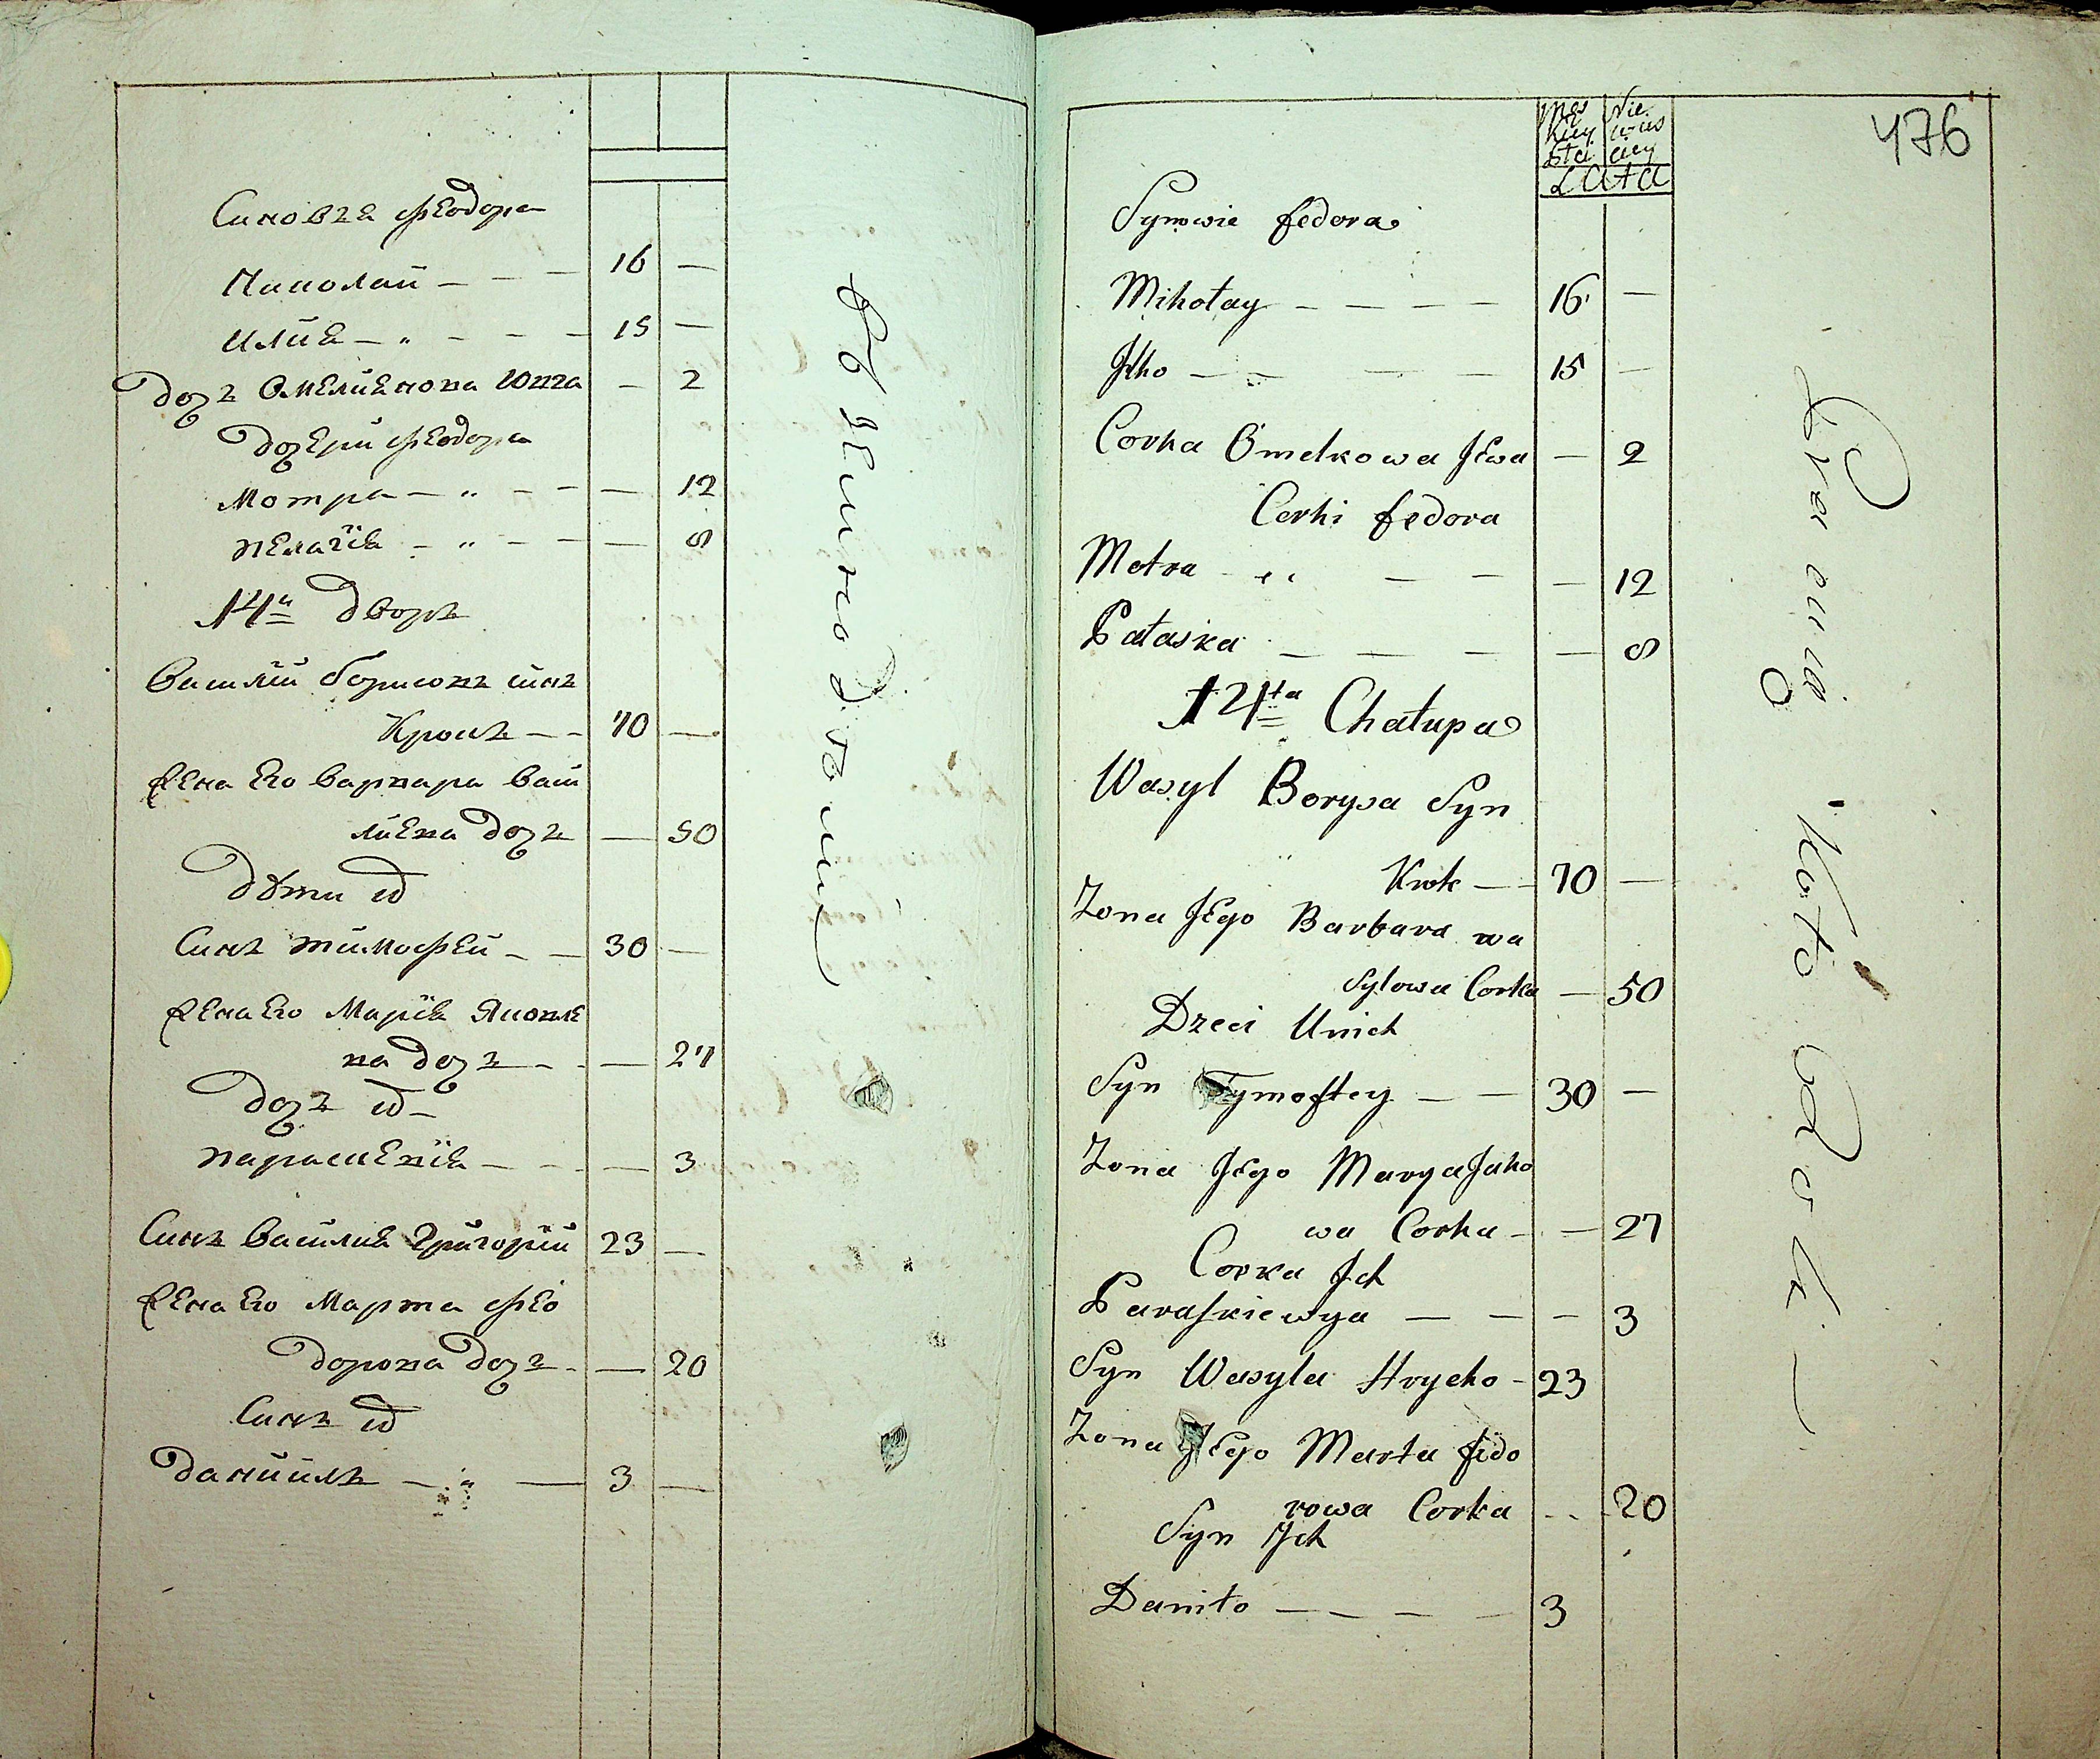 Синовья Феодора
Николай — — — 16 —
Илия — „ — — — 15 —
дочъ Омелиенова Ювга — 2
Дочери Феодора
Мотра — „ — — — 12
Пелагїя — „ — — — 8
14й Дворъ
Василїй борисовъ синъ
Крокъ — — 70 —
Жена Его варвара васи
лиева дочъ — 50
Дѣти их
Синъ тимофей — — 30 —
Жена Его Марїя Яковле
ва дочъ — — — 27
Дочъ их —
параскевїя — — — — 3
Синъ василия Григорїй 23 —
Жена Его Марта Фео
дорова дочъ — — 20
Синъ их
даниилъ — „ — 3 —
476
Męs Nie
kiey wias
płci ciey
Lata
Synowie fedora
Mikołay — — — — 16 —
Jłko — — — — 15 —
Corka Omelkowa Jewa — 2
Corki fedora
Motra „ — — — 12
Pałaska — — — — 8
14ta Chałupa
Wasyl Borysa Syn
Krok — — 70 —
Zona Jego Barbara wa
sylowa Corka — 50
Dzeci Unich
Syn Tymoftey — — 30 —
Zona Jego Marya Jako
wa Corka — — 27
Corka Jch
Paraskiewya — — — 3
Syn Wasyla Hrycko — 23
Zona Jego Marta fedo
rowa Corka — 20
Syn Jch
Daniło — — — — 3